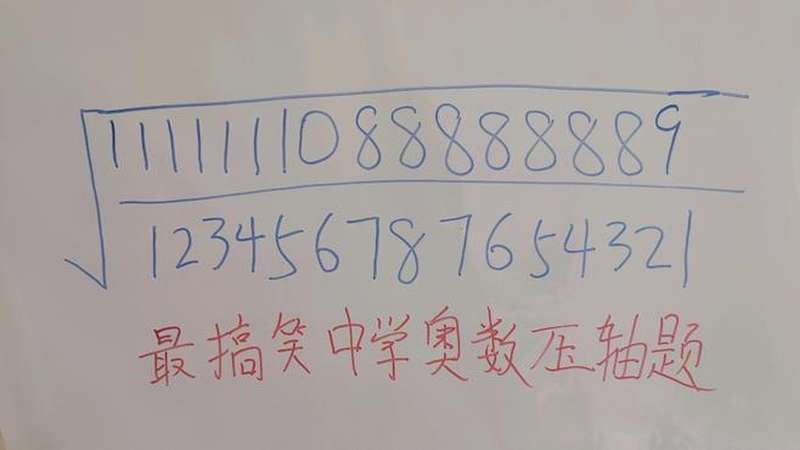 1111111088888889
123456787654321
最搞笑中学奥数压轴题